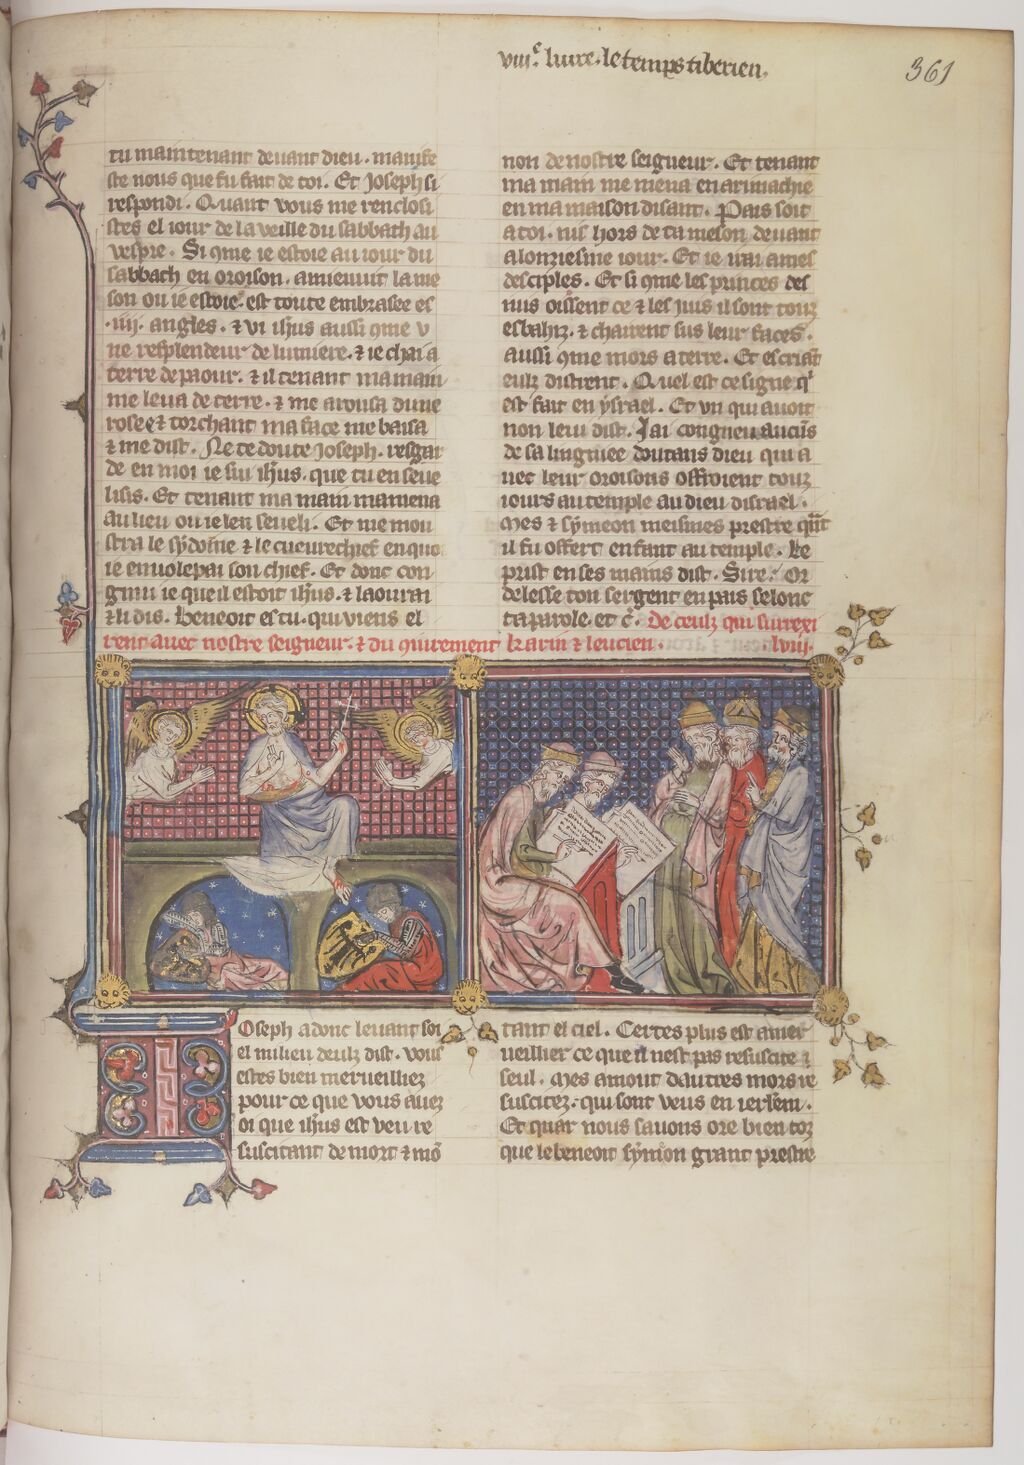 viii.e livre. le temps tiberien.
361
tu maintenant devant dieu. manife
ste nous que fu fait de toi. Et Joseph si
respondi. Quant vous me renclosi
stes el iour de la veille du sabbath au
vespre. Si 9me ie estoie au iour du
sabbach en oroison. a mienuit la me
son ou ie estoie. est toute embrasee es
.iiij. angles. ⁊ vi ihus aussi 9me v
ne resplendeur de lumiere. ⁊ ie chai a
terre de paour. ⁊ il tenant ma main
me leva de terre. ⁊ me arousa dune
rosee ⁊ torchant ma face me baisa
⁊ me dist. Ne te doute Joseph. resgar
de en moi ie sui ihus. que tu en seve
lisis. Et tenant ma main mamena
au lieu ou ie len seveli. Et me mou
stra le sydoine ⁊ le cuevrechief en quo
ie envolepai son chief. Et donc con
gnui ie que il estoit ihus. ⁊ laourai
⁊ li dis. Benoit es tu. qui viens el
non de nostre seigneur. Et tenant
ma main me mena en arimachie
en ma maison disant. Pais soit
a toi. nis hors de ta meson devant
a lonziesme iour. Et ie irai a mes
desciples. Et si 9me les princes des
nus oissent ce ⁊ les juis il sont touz
esbahiz. ⁊ chairent sus leur faces.
aussi 9me mors a terre. Et escriāt
eulz distrent. Quel est ce signe q'
est fait en ysrael. Et vn qui avoit
non levi dist. Jai congneu aucūs
de sa lingniee doutans dieu qui a
vec leur oroisons offroient touz
iours au temple au dieu disrael.
Mes ⁊ symeon meismes prestre qūt
il fu offert enfant au temple. Le
prist en ses mains dist. Sire. Or
delesse ton sergent en pais selonc
ta parole. et c̄. De ceulz qui surrexi
rent avec nostre seigneur. ⁊ du 9uirement karin ⁊ leucien. lviij.
Joseph adonc levant soi
el milieu deulz dist. vous
estes bien merveilliez
pour ce que vous avez
oi que ihus est veu re
suscitant de mort ⁊ mō
tant el ciel. Certes plus est a mer
veillier ce que il nest pas resuscite
seul. Mes a mout dautres mors re
suscitez. qui sont veus en ierlem.
Et quar nous savons ore bien toz
que le benoit symeon grant prestre